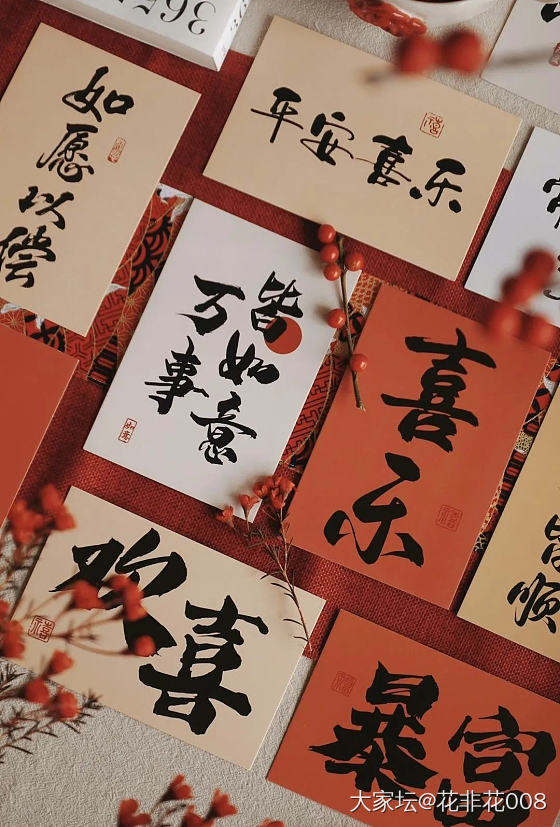 365
如愿以偿
平安喜乐
万事
皆如意
喜乐
欢喜
暴富
顺
大家坛@花非花008